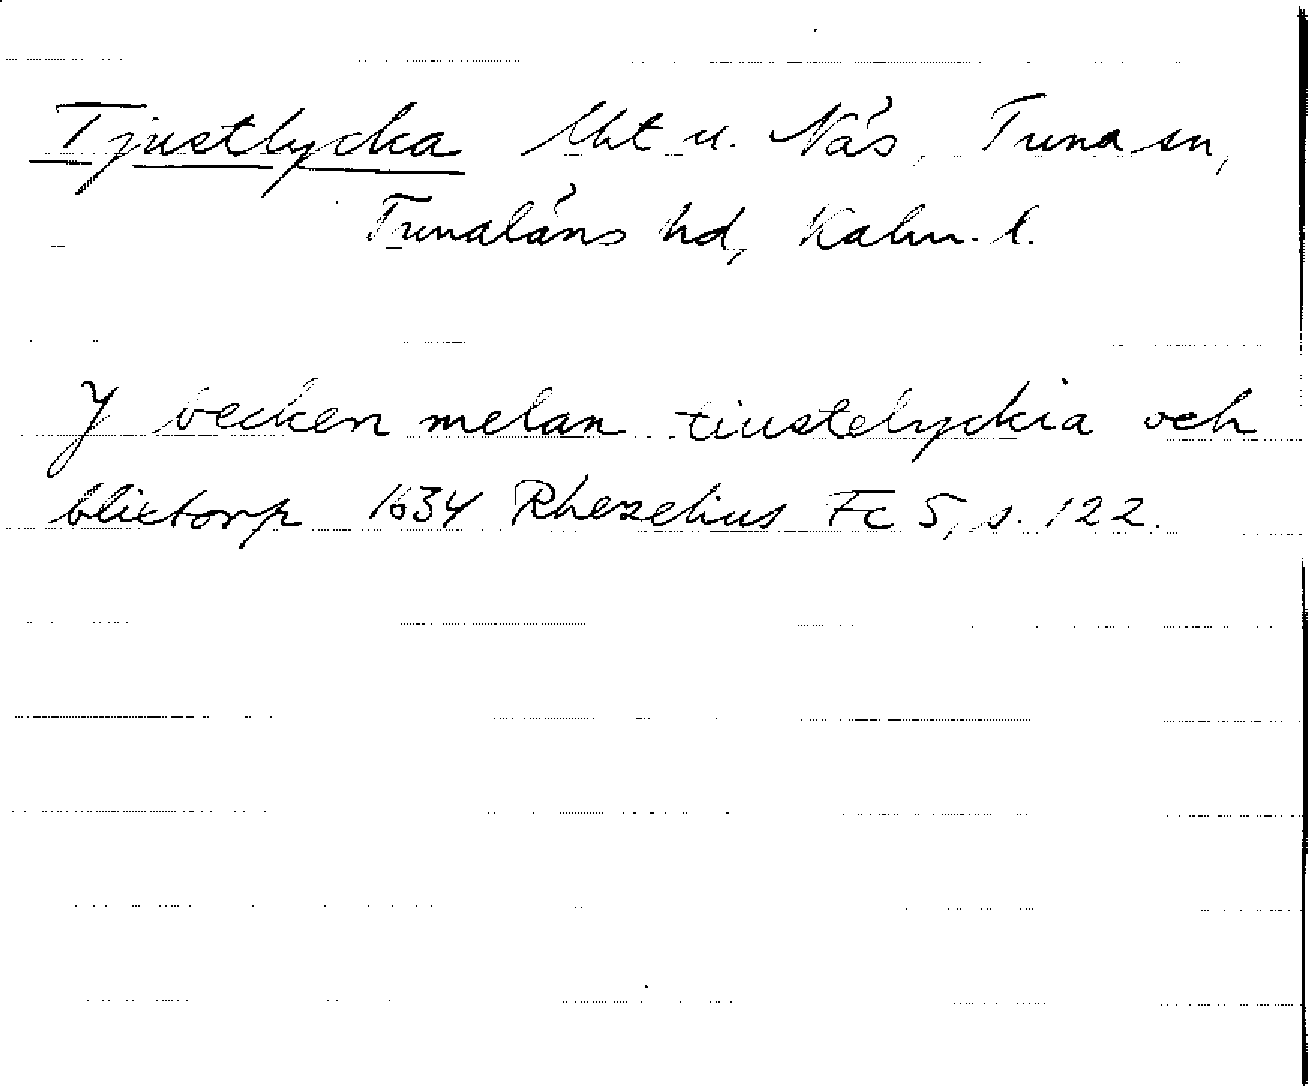 Tjustlycka lht u. Näs, Tuna sn,
Tunaläns hd, Kalm. l.
J becken melan tiustelyckia och
blixtorp 1634 Rhezelius Fc 5, s. 122.